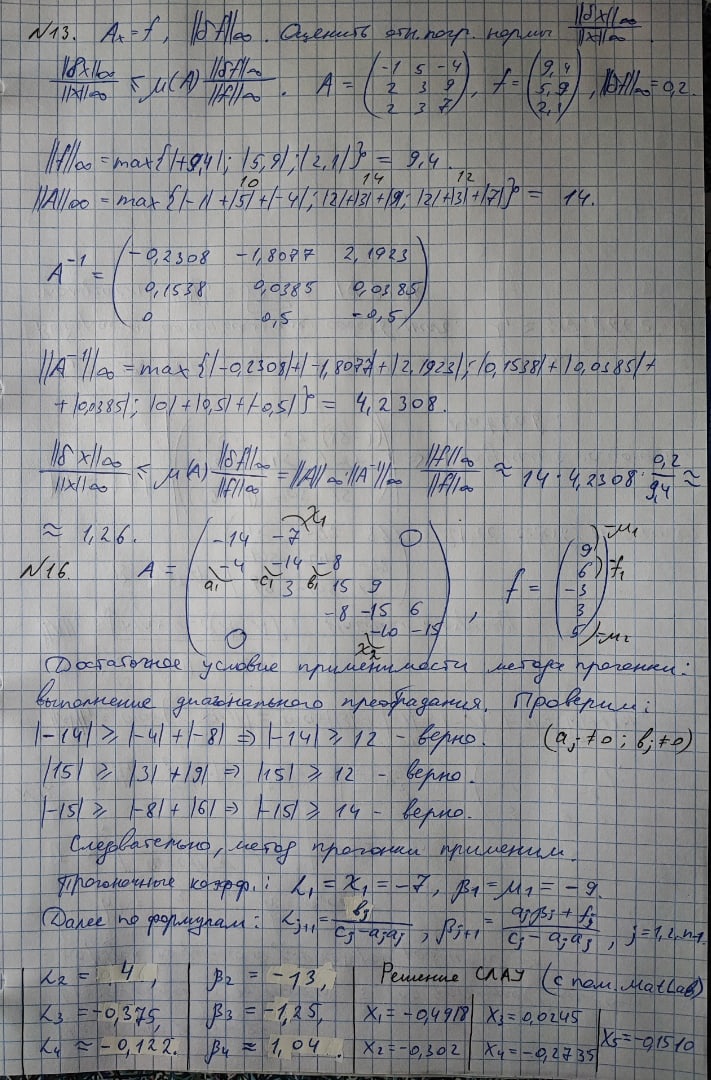 №13. Ax = f, ||δf||∞. Оценить отн. погр. нормы ||δx||∞/||x||∞.
||δx||∞/||x||∞ ≤ μ(A) ||δf||∞/||f||∞. A = (-1 5 -4; 2 3 9; 2 3 7), f = (9,4; 5,9; 2,1), ||δf||∞ = 0,2.
||f||∞ = max{|+9,4|; |5,9|; |2,1|} = 9,4.
10 14 12
||A||∞ = max{|-1|+|5|+|-4|; |2|+|3|+|9|; |2|+|3|+|7|} = 14.
A⁻¹ = (-0,2308 -1,8077 2,1923; 0,1538 0,0385 0,0385; 0 0,5 -0,5)
||A⁻¹||∞ = max{|-0,2308|+|-1,8077|+|2,1923|; |0,1538|+|0,0385|+
+|0,0385|; |0|+|0,5|+|-0,5|} = 4,2308.
||δx||∞/||x||∞ ≤ μ(A) ||δf||∞/||f||∞ = ||A||∞·||A⁻¹||∞ ||f||∞/||f||∞ ≈ 14·4,2308·0,2/9,4 ≈
≈ 1,26.
№16. A = (-14 -7; -4 -14 -8; 3 15 9; -8 -15 6; -10 -15), f = (9; 6; -3; 3; 5)
Достаточное условие применимости метода прогонки:
выполнение диагонального преобладания. Проверим:
|-14| ≥ |-4|+|-8| ⇒ |-14| ≥ 12 - верно. (aj ≠ 0; bj ≠ 0)
|15| ≥ |3|+|9| ⇒ |15| ≥ 12 - верно.
|-15| ≥ |-8|+|6| ⇒ |-15| ≥ 14 - верно.
Следовательно, метод прогонки применим.
Прогоночные коэфф.: α₁ = χ₁ = -7, β₁ = μ₁ = -9.
Далее по формулам: αj+1 = bj/(cj - ajαj), βj+1 = (ajβj + fj)/(cj - ajαj), j=1,2,n-1.
α₂ = 4, β₂ = -13, Решение СЛАУ (с пом. MatLab)
α₃ = -0,375, β₃ = -1,25, x₁ = -0,4918 x₃ = 0,0245 x₅ = -0,1510
α₄ ≈ -0,122. β₄ ≈ 1,04. x₂ = -0,302 x₄ = -0,2735